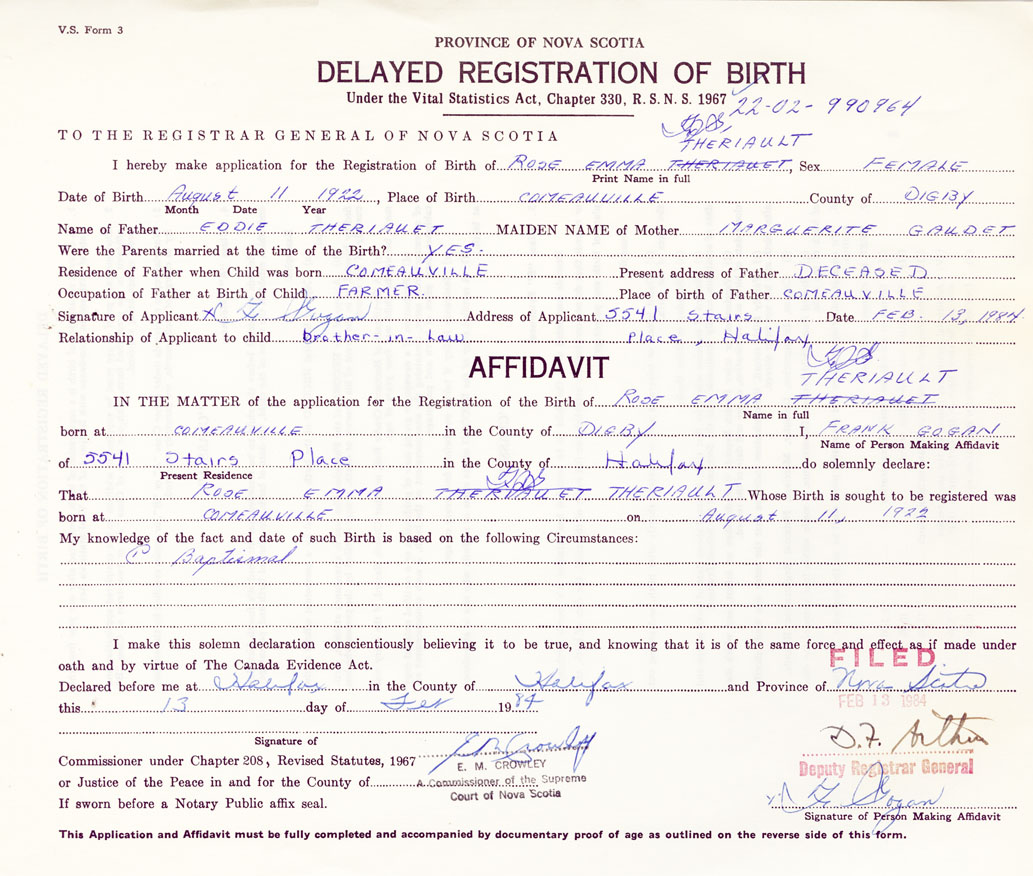 V.S. Form 3
PROVINCE OF NOVA SCOTIA
DELAYED REGISTRATION OF BIRTH
Under the Vital Statistics Act, Chapter 330, R. S. N. S. 1967
22-02-990964
TO THE REGISTRAR GENERAL OF NOVA SCOTIA
THERIAULT
I hereby make application for the Registration of Birth of ROSE EMMA THERIAUET, Sex FEMALE
Print Name in full
Date of Birth August 11 1922, Place of Birth COMEAUVILLE County of DIGBY
Month Date Year
Name of Father EDDIE THERIAUET MAIDEN NAME of Mother MARGUERITE GAUDET
Were the Parents married at the time of the Birth? YES.
Residence of Father when Child was born COMEAUVILLE Present address of Father DECEASED
Occupation of Father at Birth of Child FARMER. Place of birth of Father COMEAUVILLE
Signature of Applicant X Gogan Address of Applicant 5541 Stairs Date FEB. 13, 1984.
Relationship of Applicant to child brother-in-Law Place, Halifax
AFFIDAVIT
THERIAULT
IN THE MATTER of the application for the Registration of the Birth of ROSE EMMA THERIAUET
Name in full
born at COMEAUVILLE in the County of DIGBY I, FRANK GOGAN
Name of Person Making Affidavit
of 5541 Stairs Place in the County of Halifax do solemnly declare:
Present Residence
That ROSE EMMA THERIAUET THERIAULT Whose Birth is sought to be registered was
born at COMEAUVILLE on August 11, 1922
My knowledge of the fact and date of such Birth is based on the following Circumstances:
Baptismal
I make this solemn declaration conscientiously believing it to be true, and knowing that it is of the same force and effect as if made under
oath and by virtue of The Canada Evidence Act.
FILED
Declared before me at Halifax in the County of Halifax and Province of Nova Scotia
this 13 day of Feb 1984
FEB 13 1984
Signature of
Commissioner under Chapter 208, Revised Statutes, 1967
E. M. CROWLEY
Deputy Registrar General
or Justice of the Peace in and for the County of
A Commissioner of the Supreme
Court of Nova Scotia
If sworn before a Notary Public affix seal.
X Gogan
Signature of Person Making Affidavit
This Application and Affidavit must be fully completed and accompanied by documentary proof of age as outlined on the reverse side of this form.